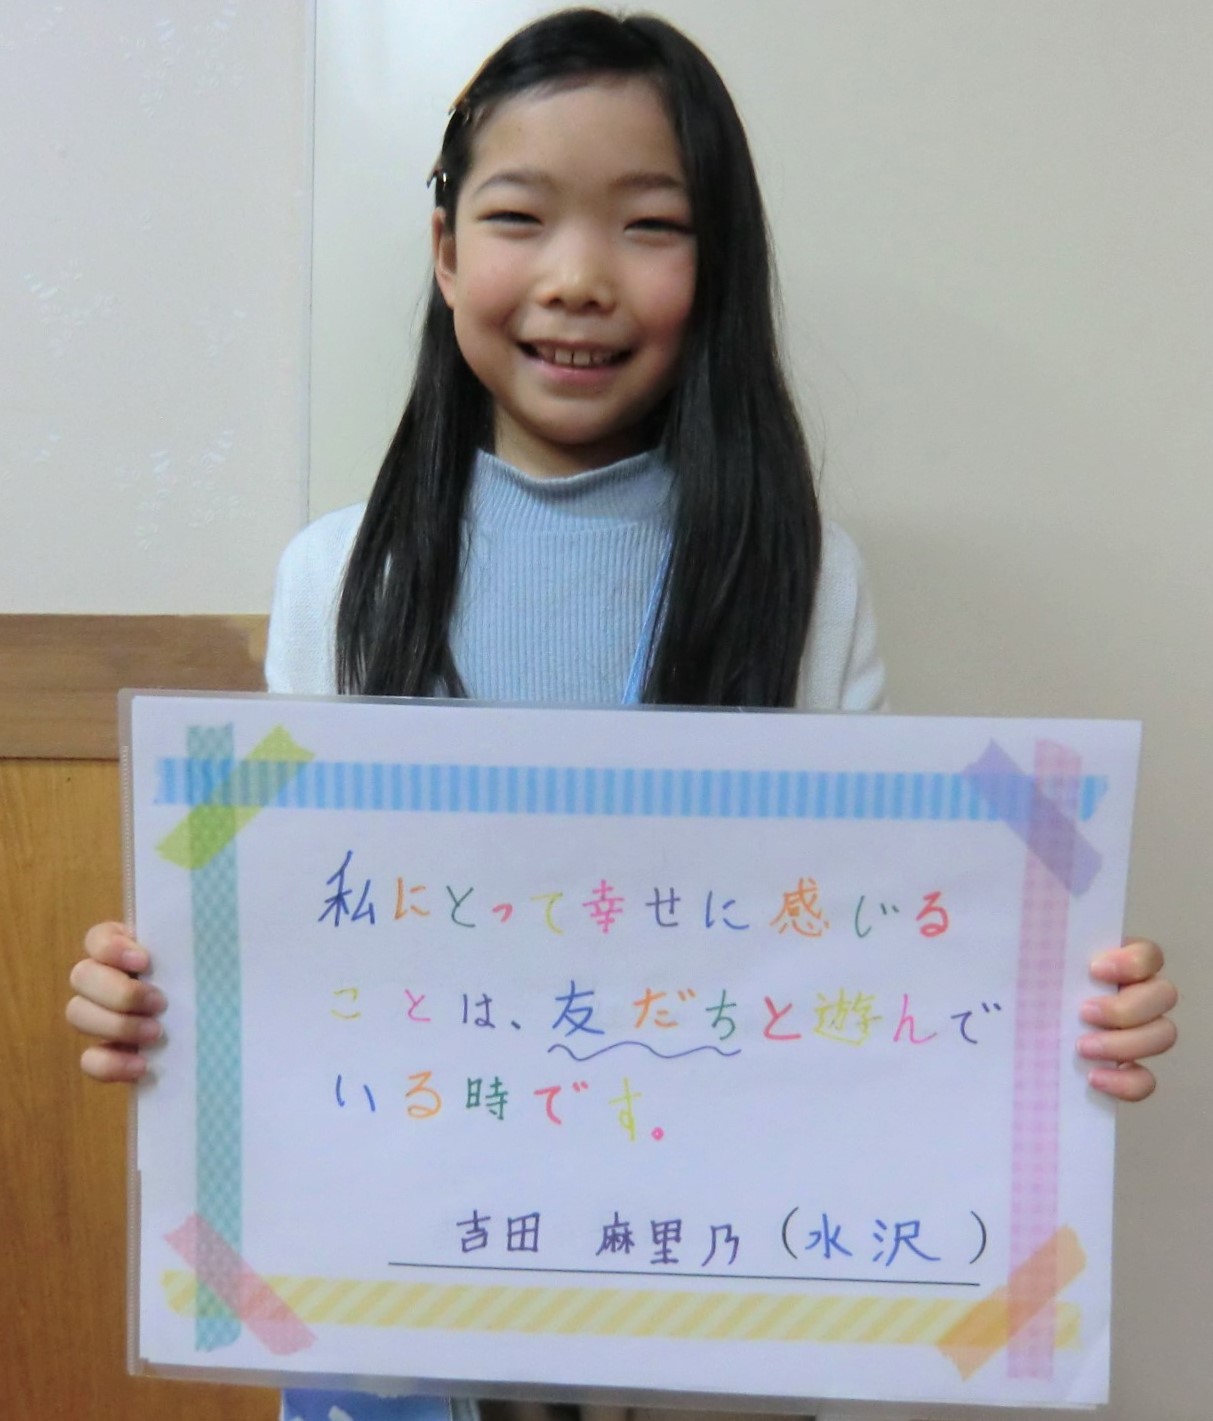 私にとって幸せに感じる
ことは、友だちと遊んで
いる時です。
吉田 麻里乃(水沢)